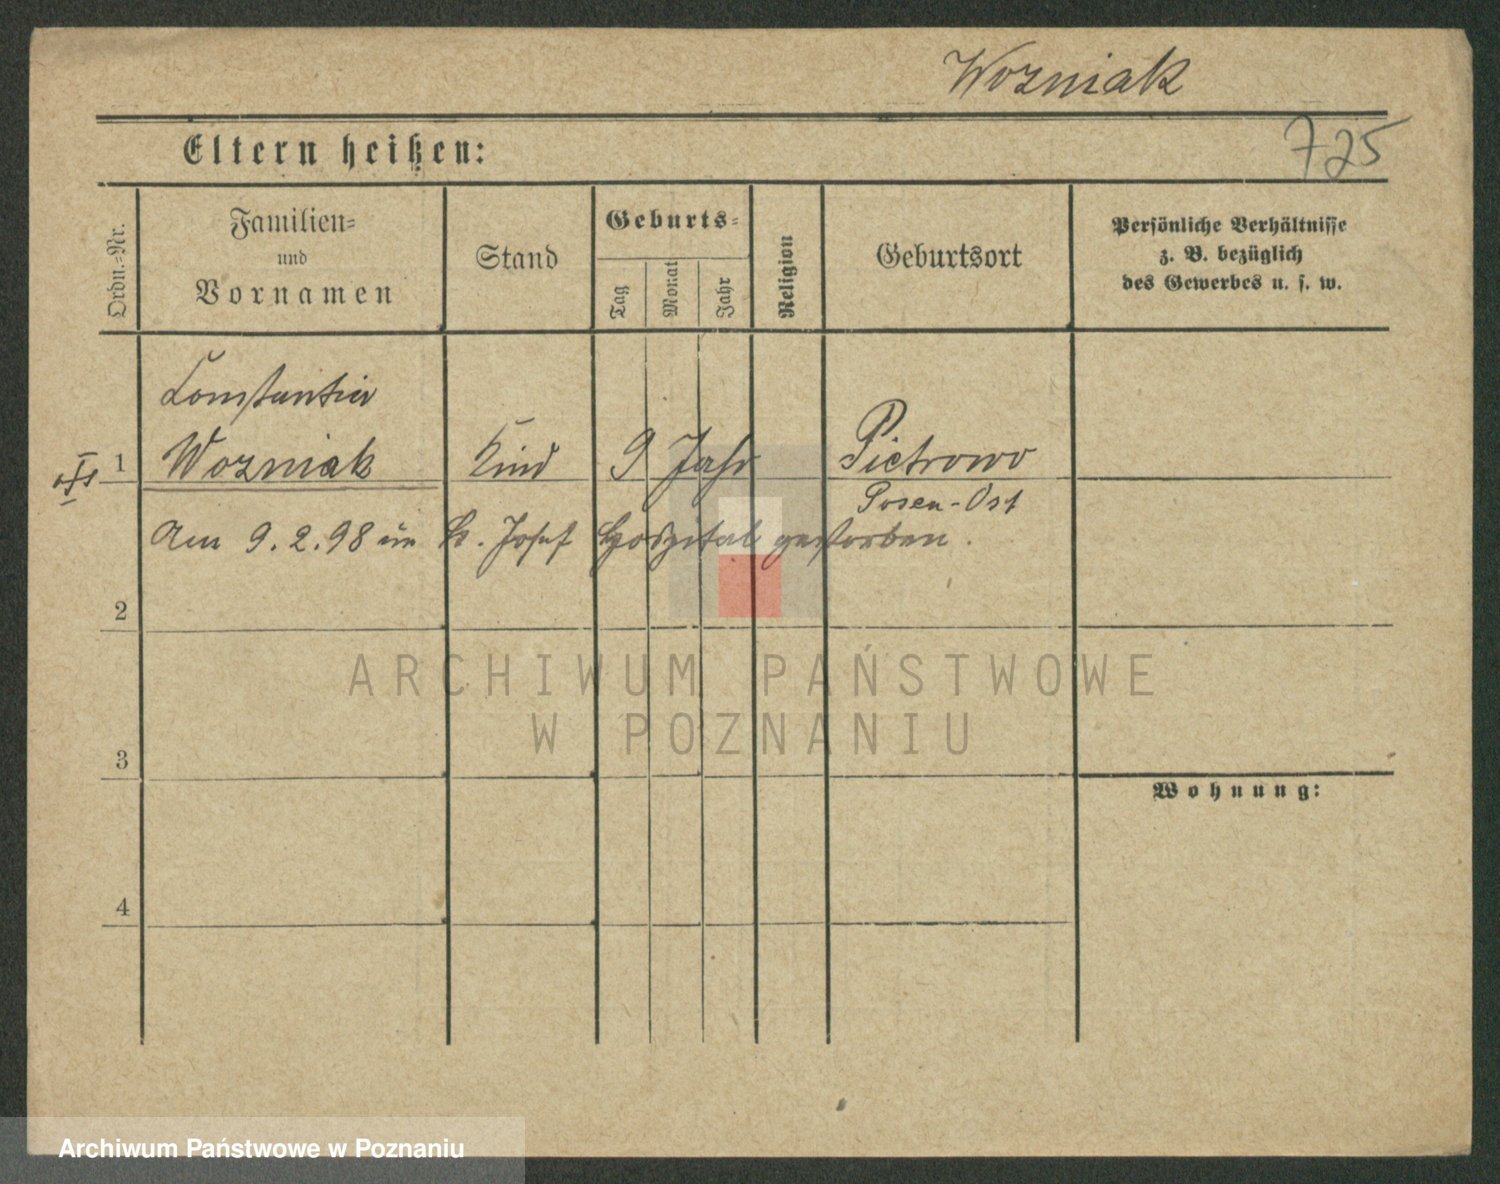 Wozniak
725
Eltern heißen:
Ordn.-Nr.
Familien-
und
Vornamen
Stand
Geburts-
Tag
Monat
Jahr
Religion
Geburtsort
Persönliche Verhältnisse
z. B. bezüglich
des Gewerbes u. s. w.
Constantin
1 Wozniak Kind 9 Jahr Pietrowo
Posen-Ost
Am 9.2.98 im St. Josef Hospital gestorben.
2
ARCHIWUM PAŃSTWOWE
W POZNANIU
3
Wohnung:
4
Archiwum Państwowe w Poznaniu